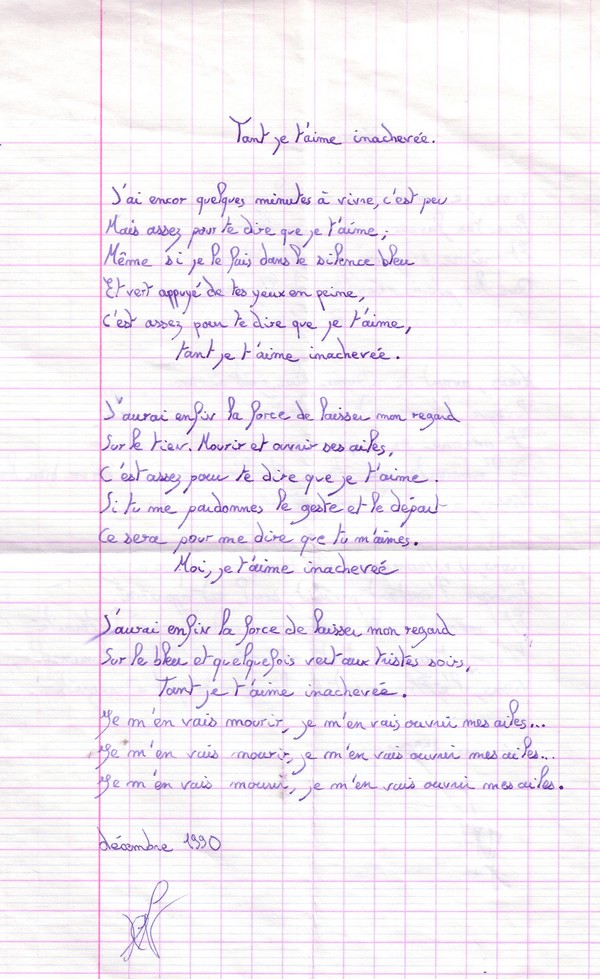 Tant je t'aime inachevée.
J'ai encor quelques minutes à vivre, c'est peu
Mais assez pour te dire que je t'aime ;
Même si je le fais dans le silence bleu
Et vert appuyé de tes yeux en peine,
C'est assez pour te dire que je t'aime,
tant je t'aime inachevée.
J'aurai enfin la force de laisser mon regard
Sur le tien. Mourir et ouvrir ses ailes,
C'est assez pour te dire que je t'aime.
Si tu me pardonnes le geste et le départ
Ce sera pour me dire que tu m'aimes.
Moi, je t'aime inacheveé
J'aurai enfin la force de laisser mon regard
Sur le bleu et quelquefois vert aux tristes soirs,
Tant je t'aime inachevée.
Je m'en vais mourir, je m'en vais ouvrir mes ailes...
Je m'en vais mourir, je m'en vais ouvrir mes ailes...
Je m'en vais mourir, je m'en vais ouvrir mes ailes.
décembre 1990